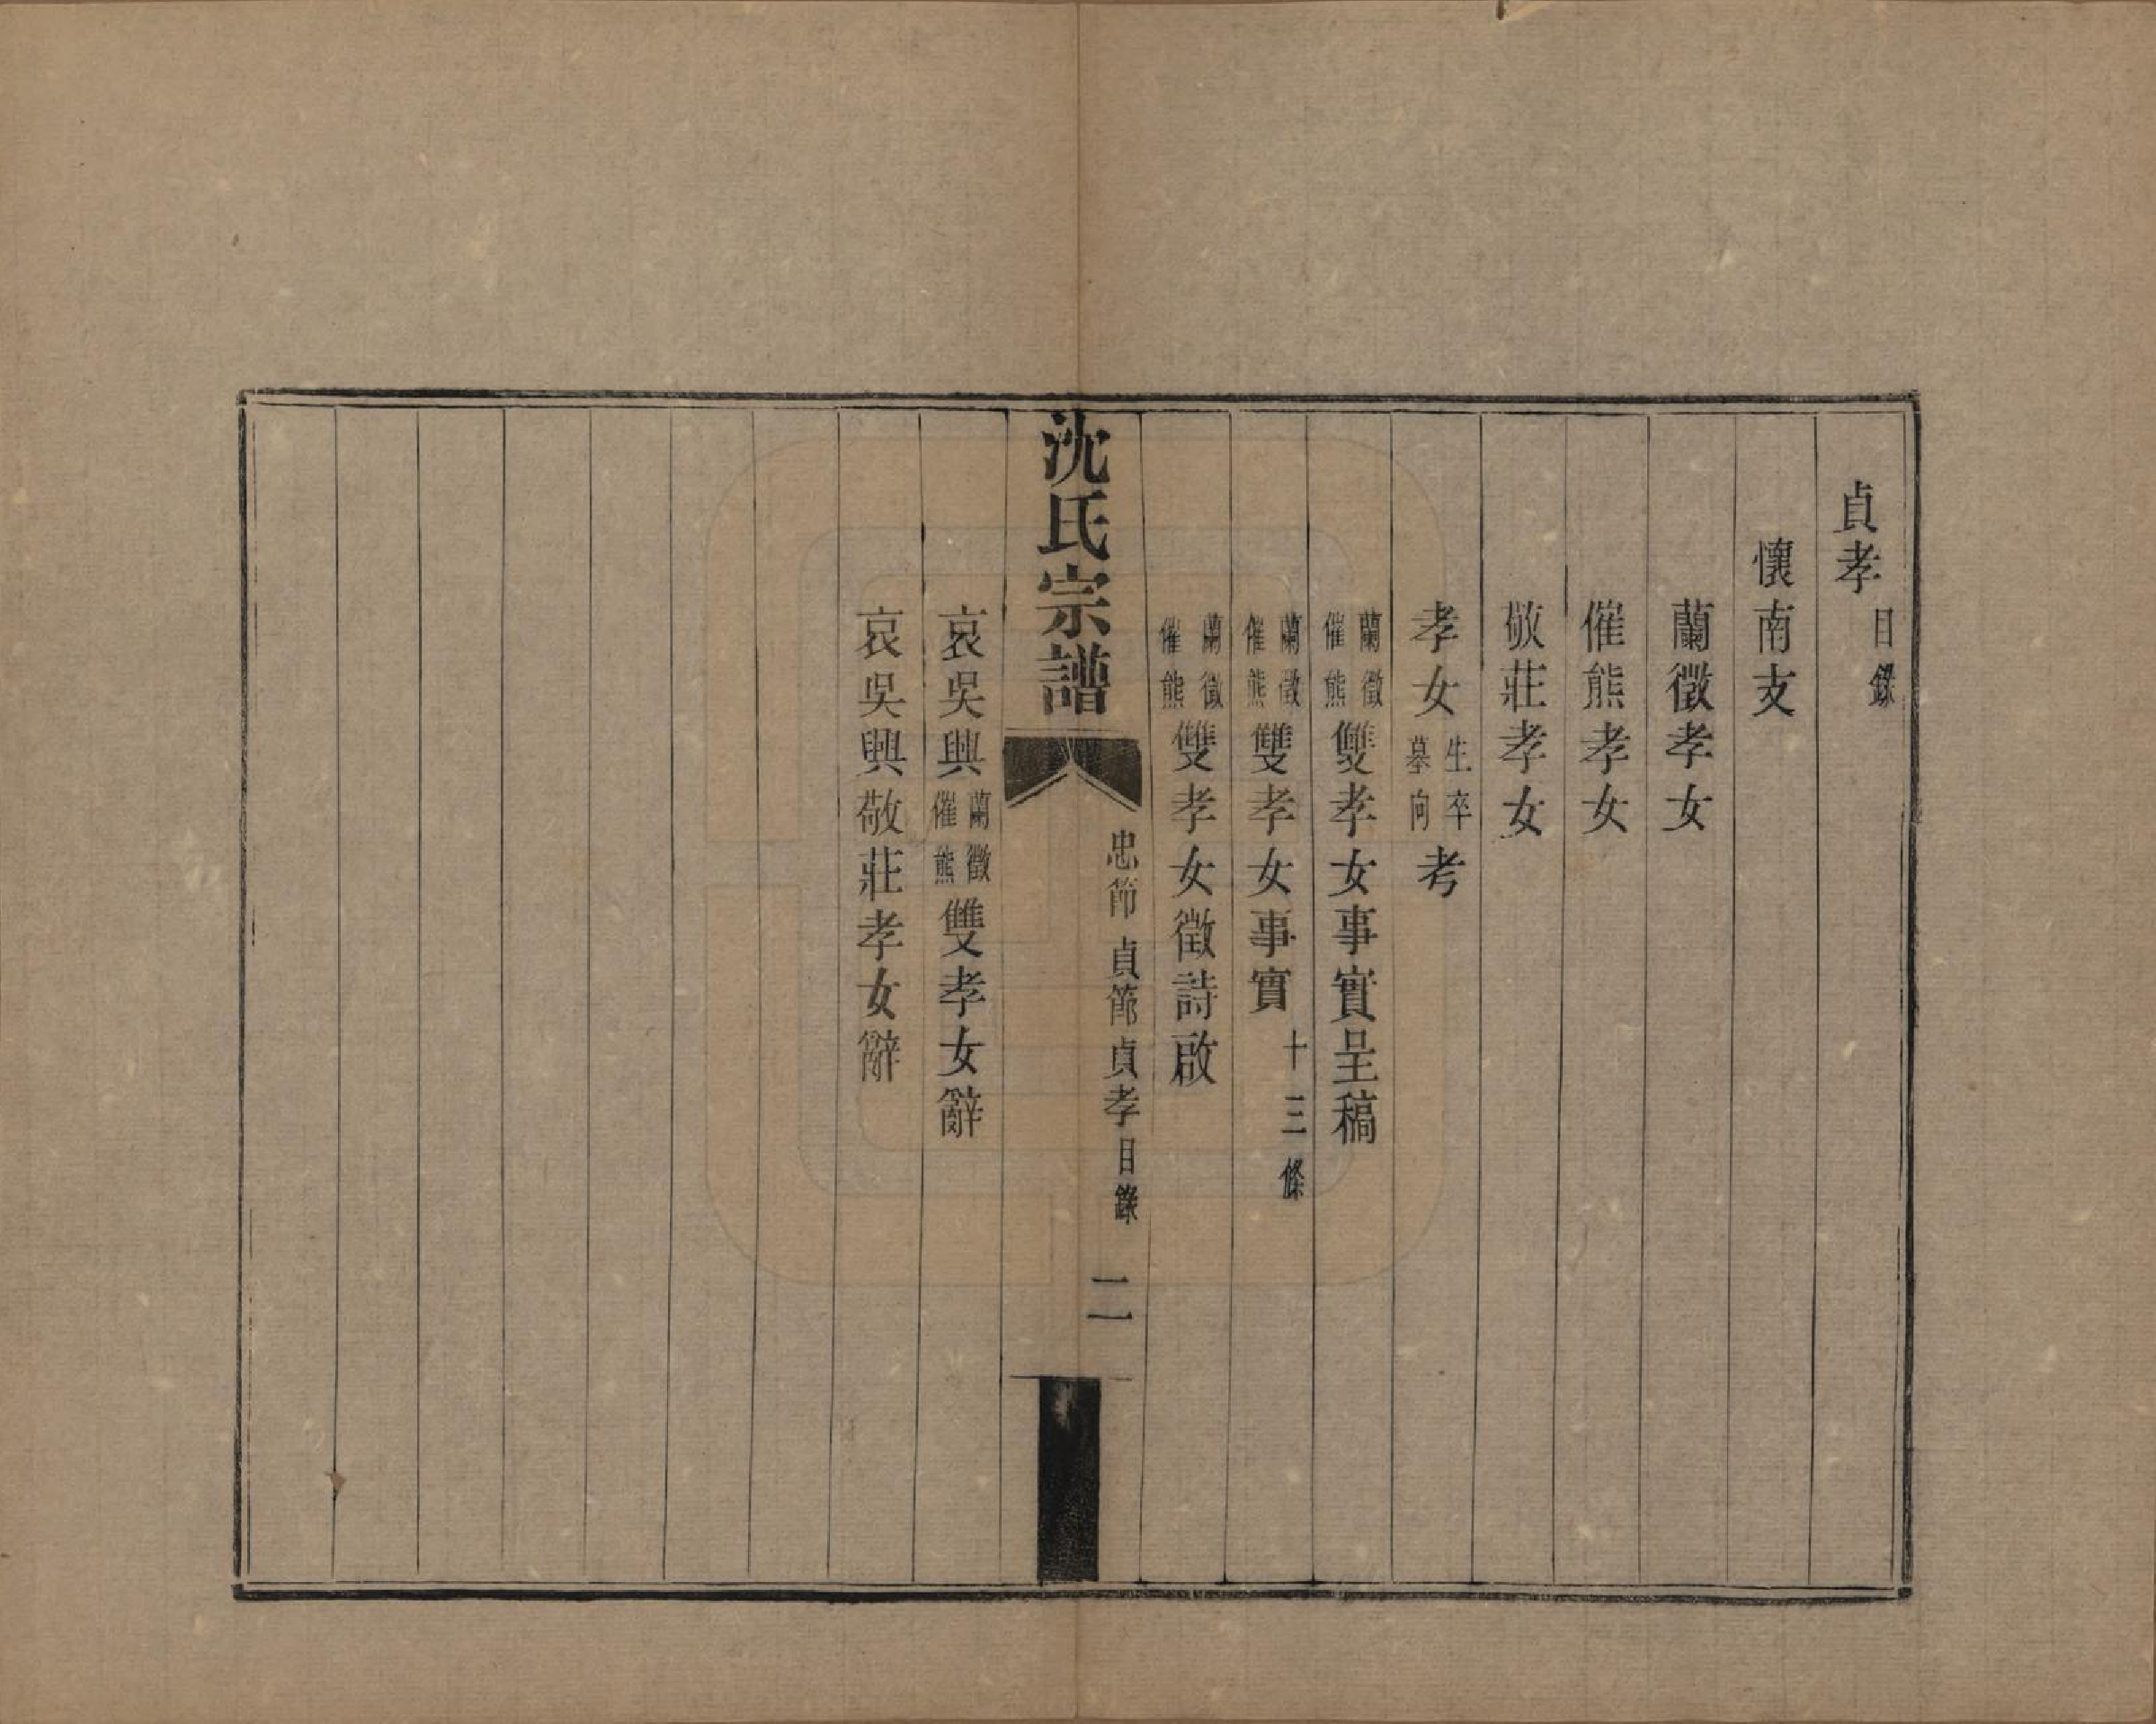 貞孝目錄
懷南支
蘭徵孝女
催熊孝女
敬莊孝女
孝女生卒墓向考
蘭徵催熊雙孝女事實呈稿
蘭徵催熊雙孝女事實十三條
蘭徵催熊雙孝女徵詩啟
沈氏宗譜 忠節 貞節 貞孝目錄 二
哀吳興蘭徵催熊雙孝女辭
哀吳興敬莊孝女辭